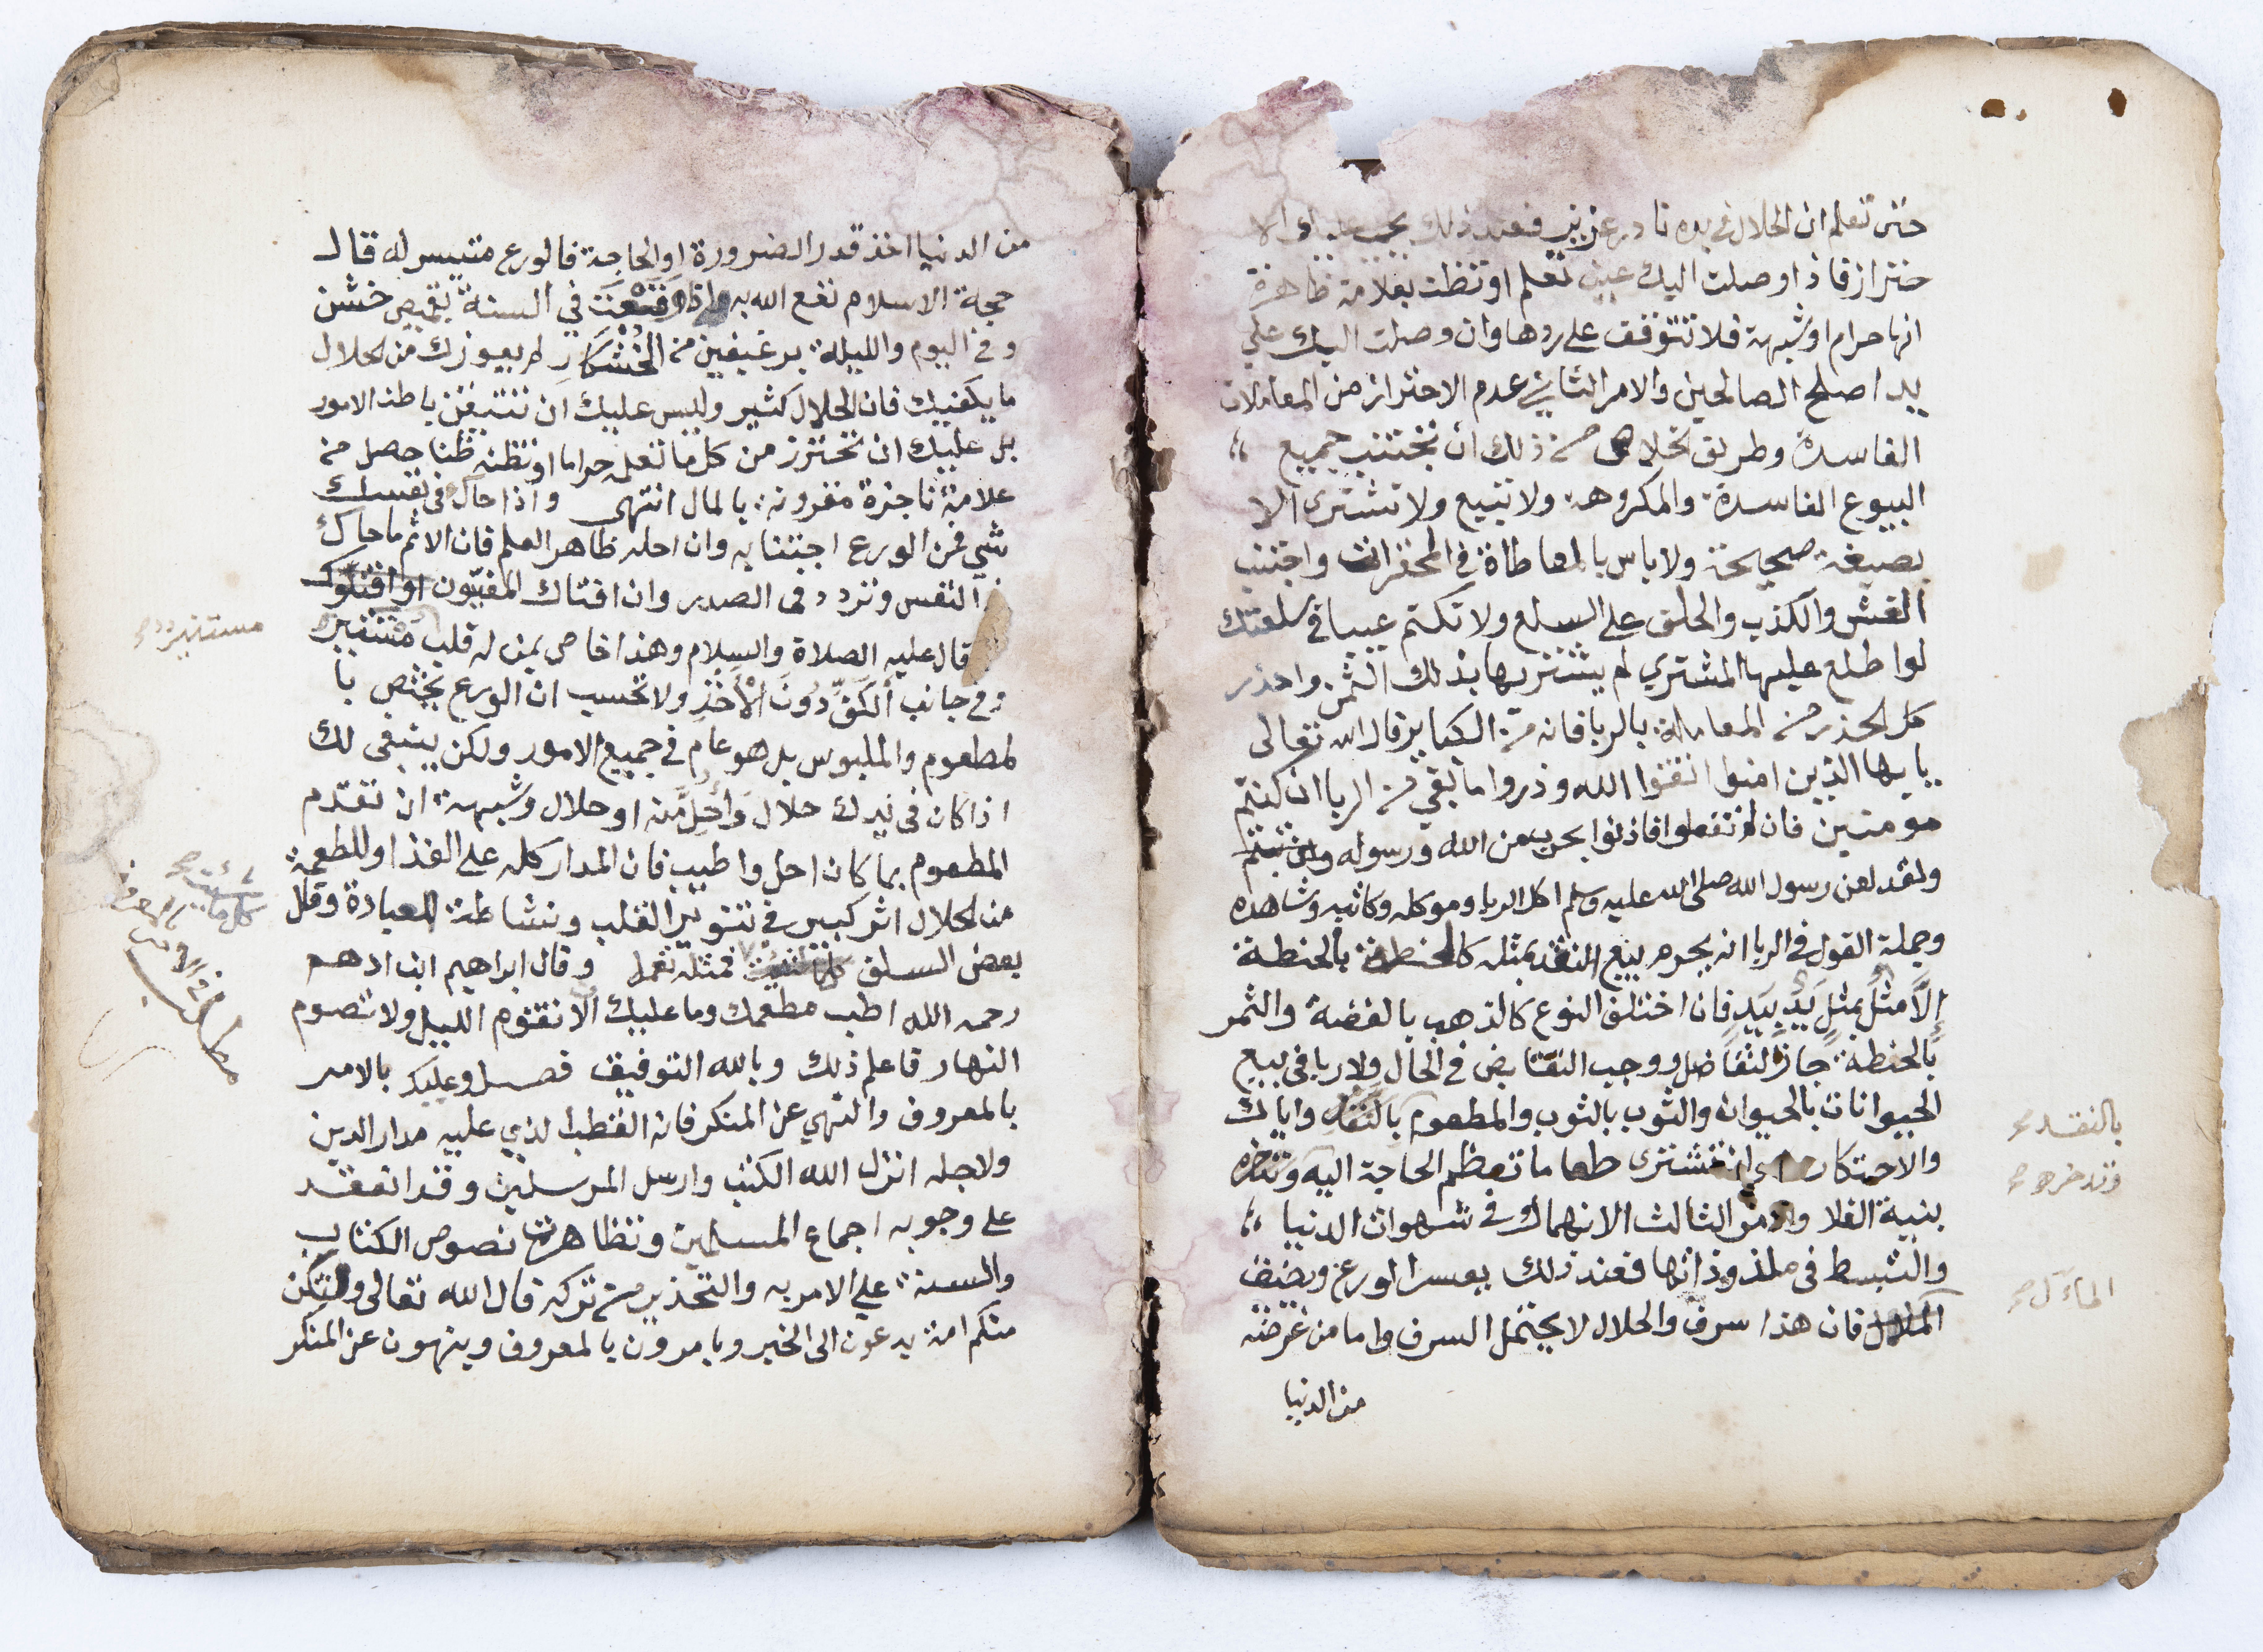 حتى تعلم ان الحلال في يده نادر عزيز فعند ذلك يجب عليك الا
حتراز فاذا وصلت اليك عين تعلم او تظن بعلامة ظاهرة
انها حرام او شبهة فلا تتوقف على ردها وان وصلت اليك على
يد اصلح الصالحين والامر الثاني عدم الاحتراز من المعاملات
الفاسدة وطريق الخلاص من ذلك ان تجتنب جميع
البيوع الفاسدة والمكروهة ولا تبيع ولا تشتري الا
بصيغة صحيحة ولا باس بالمعاطاة في المحقرات واجتنب
الغش والكذب والحلف على السلع ولا تكتم عيبا في سلعتك
لو اطلع عليها المشتري لم يشتريها بذلك الثمن واحذر
كل الحذر من المعاملة بالربا فانه من الكباير قال الله تعالى
يا يها الذين امنوا اتقوا الله وذروا ما بقي من الربا ان كنتم
مومنين فان لم تفعلوا فاذنوا بحرب من الله ورسوله وان تبتم
ولقد لعن رسول الله صلى الله عليه وسلم اكل الربا وموكله وكاتبه وشاهده
وجملة القول في الربا انه يحرم بيع النقد بمثله كالحنطة بالحنطة
الا مثل بمثل يد بيد فان اختلف النوع كالذهب بالفضة والثمر
بالحنطة جاز التفاضل ووجب التقابض في الحال ولا ربا في بيع
الحيوانات بالحيوان والثوب بالثوب والمطعوم بالنقد واياك
والاحتكار اي ان تشترى طعاما تعظم الحاجة اليه وتدخره
بنية الغلا والامر الثالث الانهماك في شهوات الدنيا
والتبسط في ملذوذاتها فعند ذلك يعسر الورع ويضيق
الحلال فان هذا سرف والحلال لا يحتمل السرف واما من غرضه
من الدنيا
بالنقد صح
وتدخره صح
من الدنيا اخذ قدر الضرورة او الحاجة فالورع متيسر له قال
حجة الاسلام نفع الله به واذا قنعت في السنة بقميص خشن
وفي اليوم والليلة برغيفين من الخشكار لم يعوزك من الحلال
ما يكفيك فان الحلال كثير وليس عليك ان تتيقن باطن الامور
بل عليك ان تحترز من كل ما تعلمه حراما او تظنه ظنا حصل من
علامة ناجزة مقرونة بالمال انتهى واذا حاك في نفسك
شي فمن الورع اجتنابه وان احله ظاهر العلم فان الاثم ما حاك
النفس وتردد في الصدر وان افتاك المفتون او افتوك
قال عليه الصلاة والسلام وهذا خاص بمن له قلب مستنير
وفي جانب الكف دون الاخذ ولا تحسب ان الورع يختص با
لمطعوم والملبوس بل هو عام في جميع الامور ولكن ينبغى لك
اذا كان في يدك حلال واحل منه او حلال وشبهة ان تقدم
المطعوم بما كان احل واطيب فان المدار كله على الغذا وللطعمة
من الحلال اثر كبير في تنوير القلب ونشاطة للعبادة وقال
بعض السلف كل ما شئت فمثله تعمل وقال ابراهيم ابن ادهم
رحمه الله اطب مطعمك وما عليك الا تقوم الليل ولا تصوم
النهار فاعلم ذلك وبالله التوفيق فصل وعليك بالامر
بالمعروف والنهي عن المنكر فانه القطب الذي عليه مدار الدين
ولاجله انزل الله الكتب وارسل المرسلين وقد انعقد
على وجوبه اجماع المسلمين وتظاهرت نصوص الكتاب
والسنة على الامر به والتحذير من تركه قال الله تعالى ولتكن
منكم امة يدعون الى الخير ويامرون بالمعروف وينهون عن المنكر
مستنير صح
كل ما شئت صح